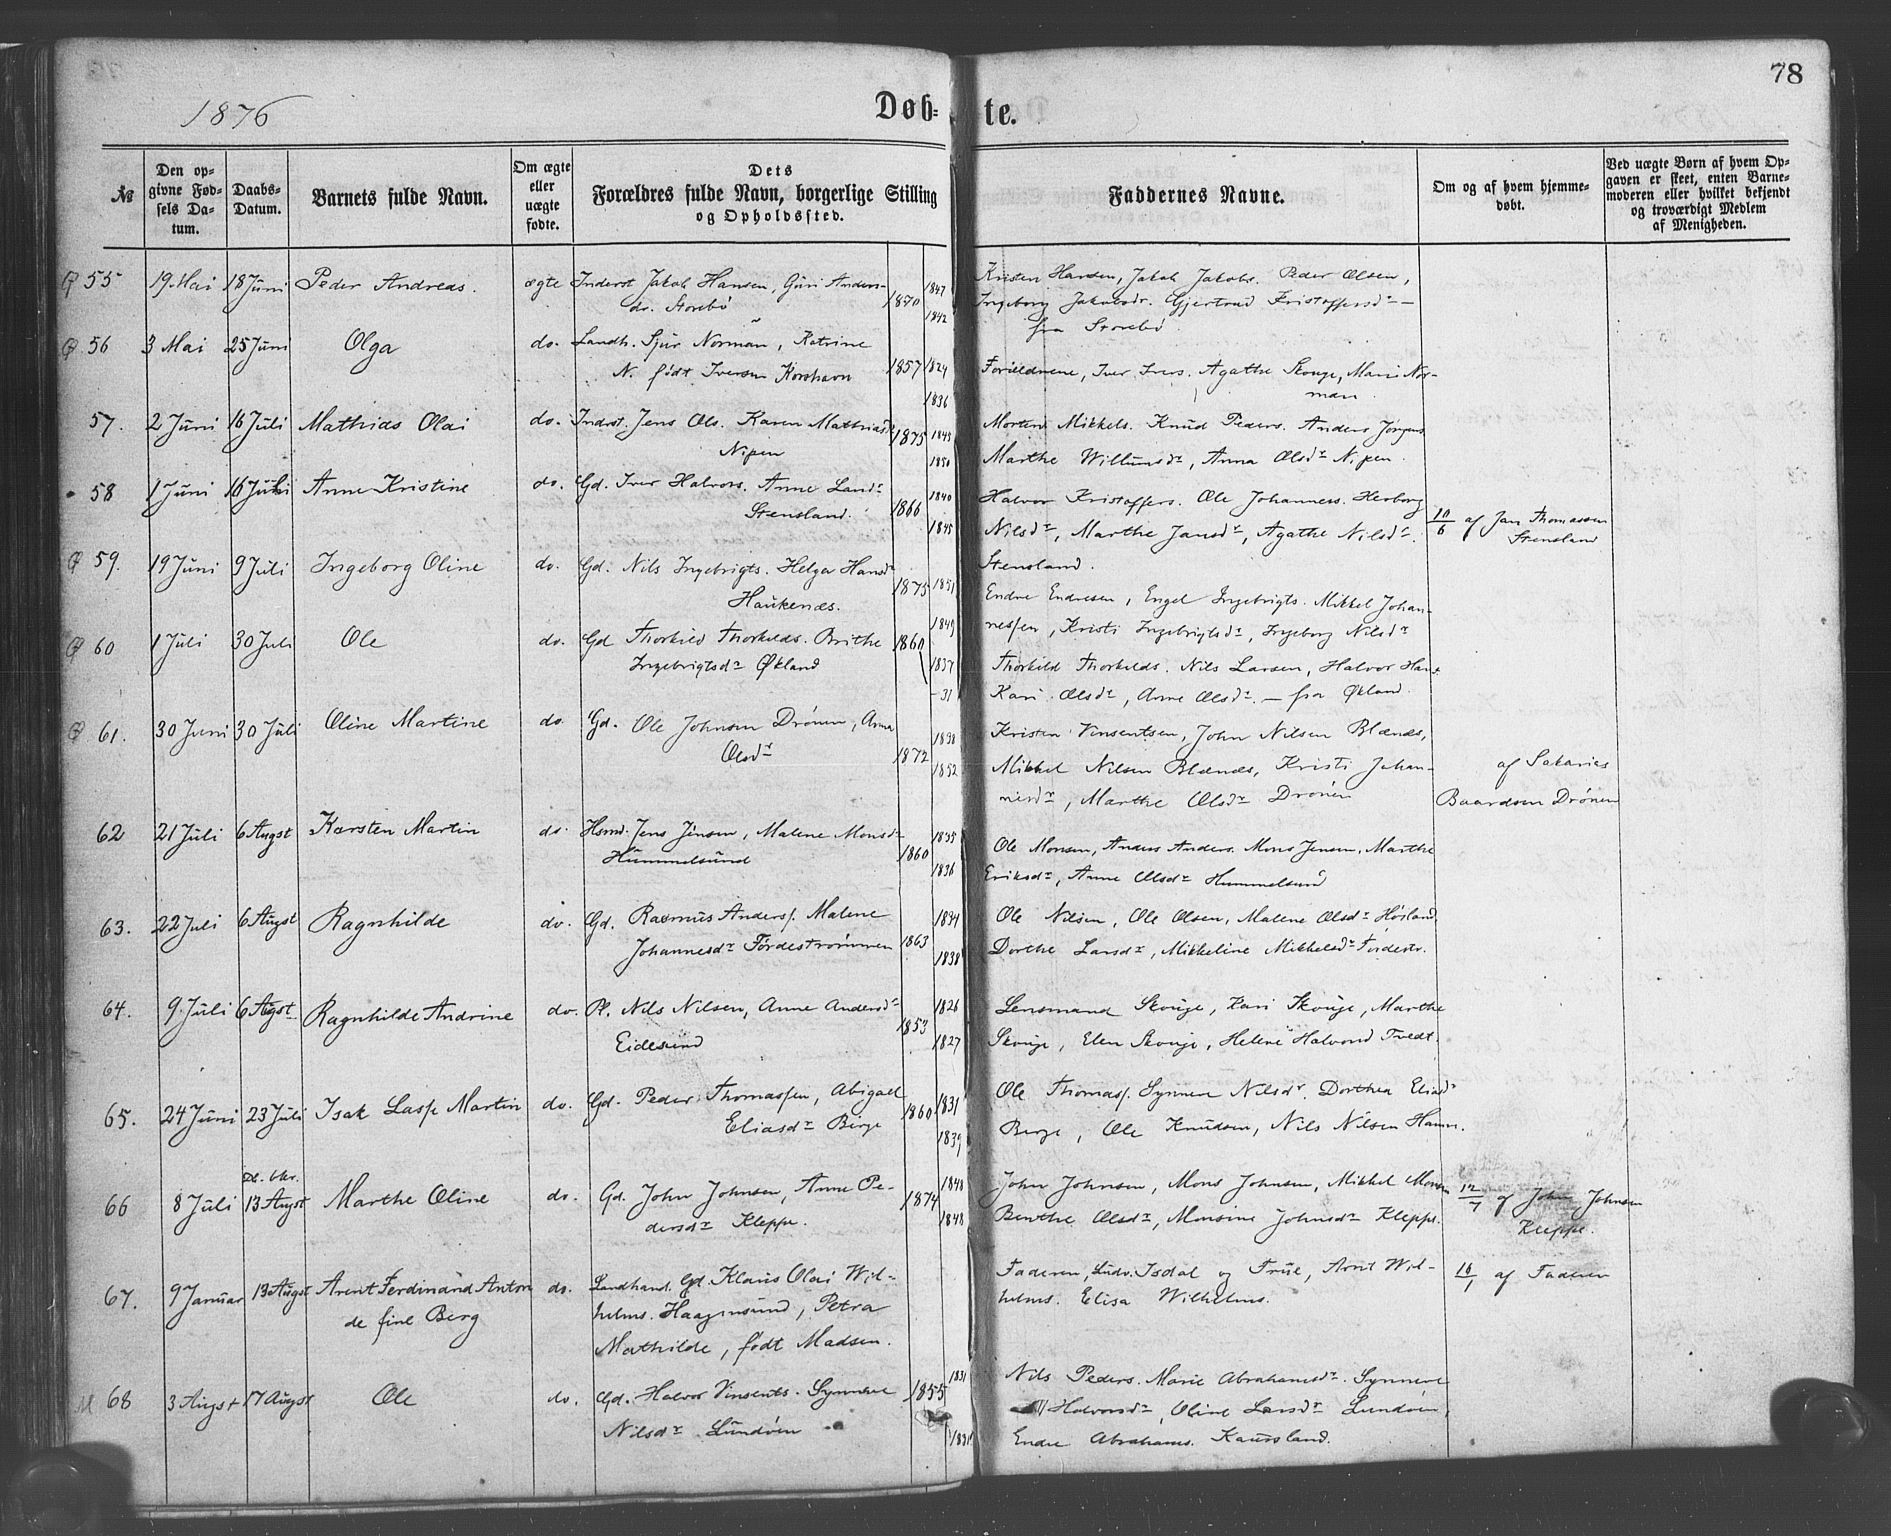 78
1876
Døb= te.
№
Den opgivne Fødsels Datum.
Daabs-Datum.
Barnets fulde Navn.
Om ægte eller uægte fødte.
Dets Forældres fulde Navn, borgerlige Stilling og Opholdssted.
Faddernes Navne.
Om og af hvem hjemmedøbt.
Ved uægte Børn af hvem Opgaven er skeet, enten Barnemoderen eller hvilket bekjendt og troværdigt Medlem af Menigheden.
55 19 Mai 18 Juni Peder Andreas. ægte Inderst Jakob Hansen, Guri Anders- 1847 Kristen Hansen, Jakob Jakobs. Peder Olsen,
do. Storebø 1870 1842 Ingeborg Jakobsdr. Gjertrud Kristoffersdr —
fra Storebø
56 3 Mai 25 Juni Olga do. Landh. Sjur Norman, Katrine
N. født Iversen Korshavn 1857 1824 Forældrene, Iver Ivers. Agathe Skouge, Mari Nor-
1836 man.
57. 2 Juni 16 Juli Mathias Olai do. Indst. Jens Ols. Karen Mathiasdr 1875 1845 Morten Mikkels. Knud Peders. Anders Jørgens.
Nipen 1850 Marthe Willumsdr, Anna Olsdr Nipen.
58 1 Juni 16 Juli Anne Kristine do. Gd. Iver Halvors. Anne Lars-dr 1840 Halvor Kristoffers. Ole Johanness. Herborg
Stensland. 1866 1845 Nilsdr, Marthe Jansdr, Agathe Nilsdr. 10/6 af Jan Thomassen
Stensland. Stensland
59. 19 Juni 9 Juli Ingeborg Oline do. Gd. Nils Ingebrigts. Helga Hansdr
Haukenæs. 1875 1851 Endre Endresen, Engel Ingebrigts. Mikkel Johan-
1849 nessen, Kristi Ingebrigtsdr, Ingeborg Nilsdr
60 1 Juli 30 Juli Ole do. Gd Thorkild Thorkilds. Brithe 1860
Ingebrigtsdr Økland 1837 Thorkild Thorkilds. Nils Larsen, Halvor Hans.
— 31 Kari Olsdr, Anne Olsdr. — fra Økland.
61. 30 Juni 30 Juli Oline Martine do. Gd. Ole Johnsen Drönen, Anna 1838 Kristen Vinsentsen, John Nilsen Blænæs,
Olsdr 1872 1852 Mikkel Nilsen Blænæs, Kristi Johan- af Sakarias
nesdr, Marthe Olsdr Drönen Baardsen Drönen
62 21 Juli 6 Augst Karsten Martin do. Hsmd. Jens Jensen, Malene Monsdr 1835
Hummelsund 1860 1836 Ole Monsen, Anders Anders. Mons Jensen, Marthe
Eriksdr, Anne Olsdr Hummelsund
63. 22 Juli 6 Augst Ragnhilde do. Gd. Rasmus Anders. Malene 1834 Ole Nilsen, Ole Olsen, Malene Olsdr Høiland
Johannesdr Førdestrømmen 1863 1838 Dorthe Larsdr, Mikkeline Mikkelsdr Førdestr.
64. 9 Juli 6 Augst Ragnhilde Andrine do. Pl. Nils Nilsen, Anne Andersdr 1826 Lensmand Skouge, Kari Skouge, Marthe
Eidesund 1853 1827 Skouge, Elen Skouge, Helene Halvorsd Tvedt.
65. 24 Juni 23 Juli Isak Lasse Martin do. Gd. Peder Thomassen, Abigael 1860 1831 Ole Thomass. Synneve Nilsdr. Dorthea Eliasdr
Eliasdr Berge 1839 Berge, Ole Knudsen, Nils Nilsen Hamn.
66 8 Juli 13 Augst Marthe Oline do. Gd. John Johnsen, Anne Pe- 1874 1848 John Johnsen, Mons Johnsen, Mikkel Monsen 12/7 af John Johnsen
dersdr Kleppe. 1848 Berthe Olsdr, Monsine Johnsdr Kleppe. Kleppe.
67. 9 Januar 13 Augst Arent Ferdinand Anton do. Landhand. Gd. Klaus Olai Wil- Faderen, Ludv. Isdal og Frue, Arnt Wil- 16/1 af Faderen
de fine Berg helms. Haagensund, Petra helms. Elisa Wilhelms.
Mathilde, født Madsen.
68 3 Augst 17 Augst Ole do. Gd. Halvor Vinsents. Synneve 1855 1831 Nils Peders. Marie Abrahamsdr. Synneve
Nilsdr Lundøen 1831 Halvorsdr, Oline Larsdr Lundøen,
Endre Abrahams. Kausland.